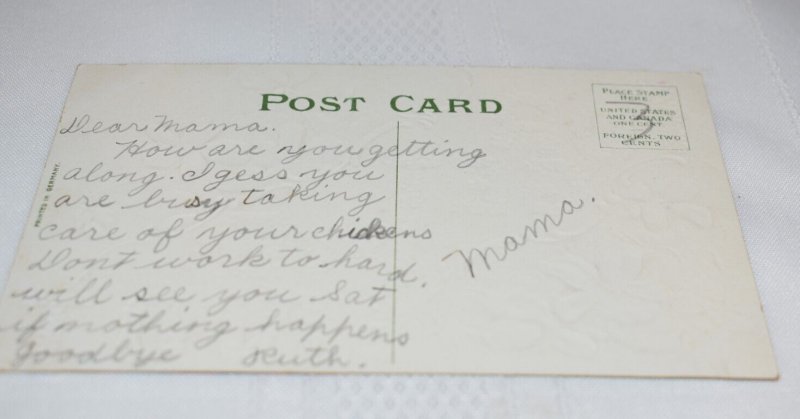 POST CARD
PLACE STAMP
HERE
UNITED STATES
AND CANADA
ONE CENT
FOREIGN, TWO
CENTS
3
PRINTED IN GERMANY.
Dear Mama.
How are you getting
along. I gess you
are busy taking
care of your chickens
Dont work to hard.
will see you Sat
if nothing happens
Goodbye Ruth.
Mama.